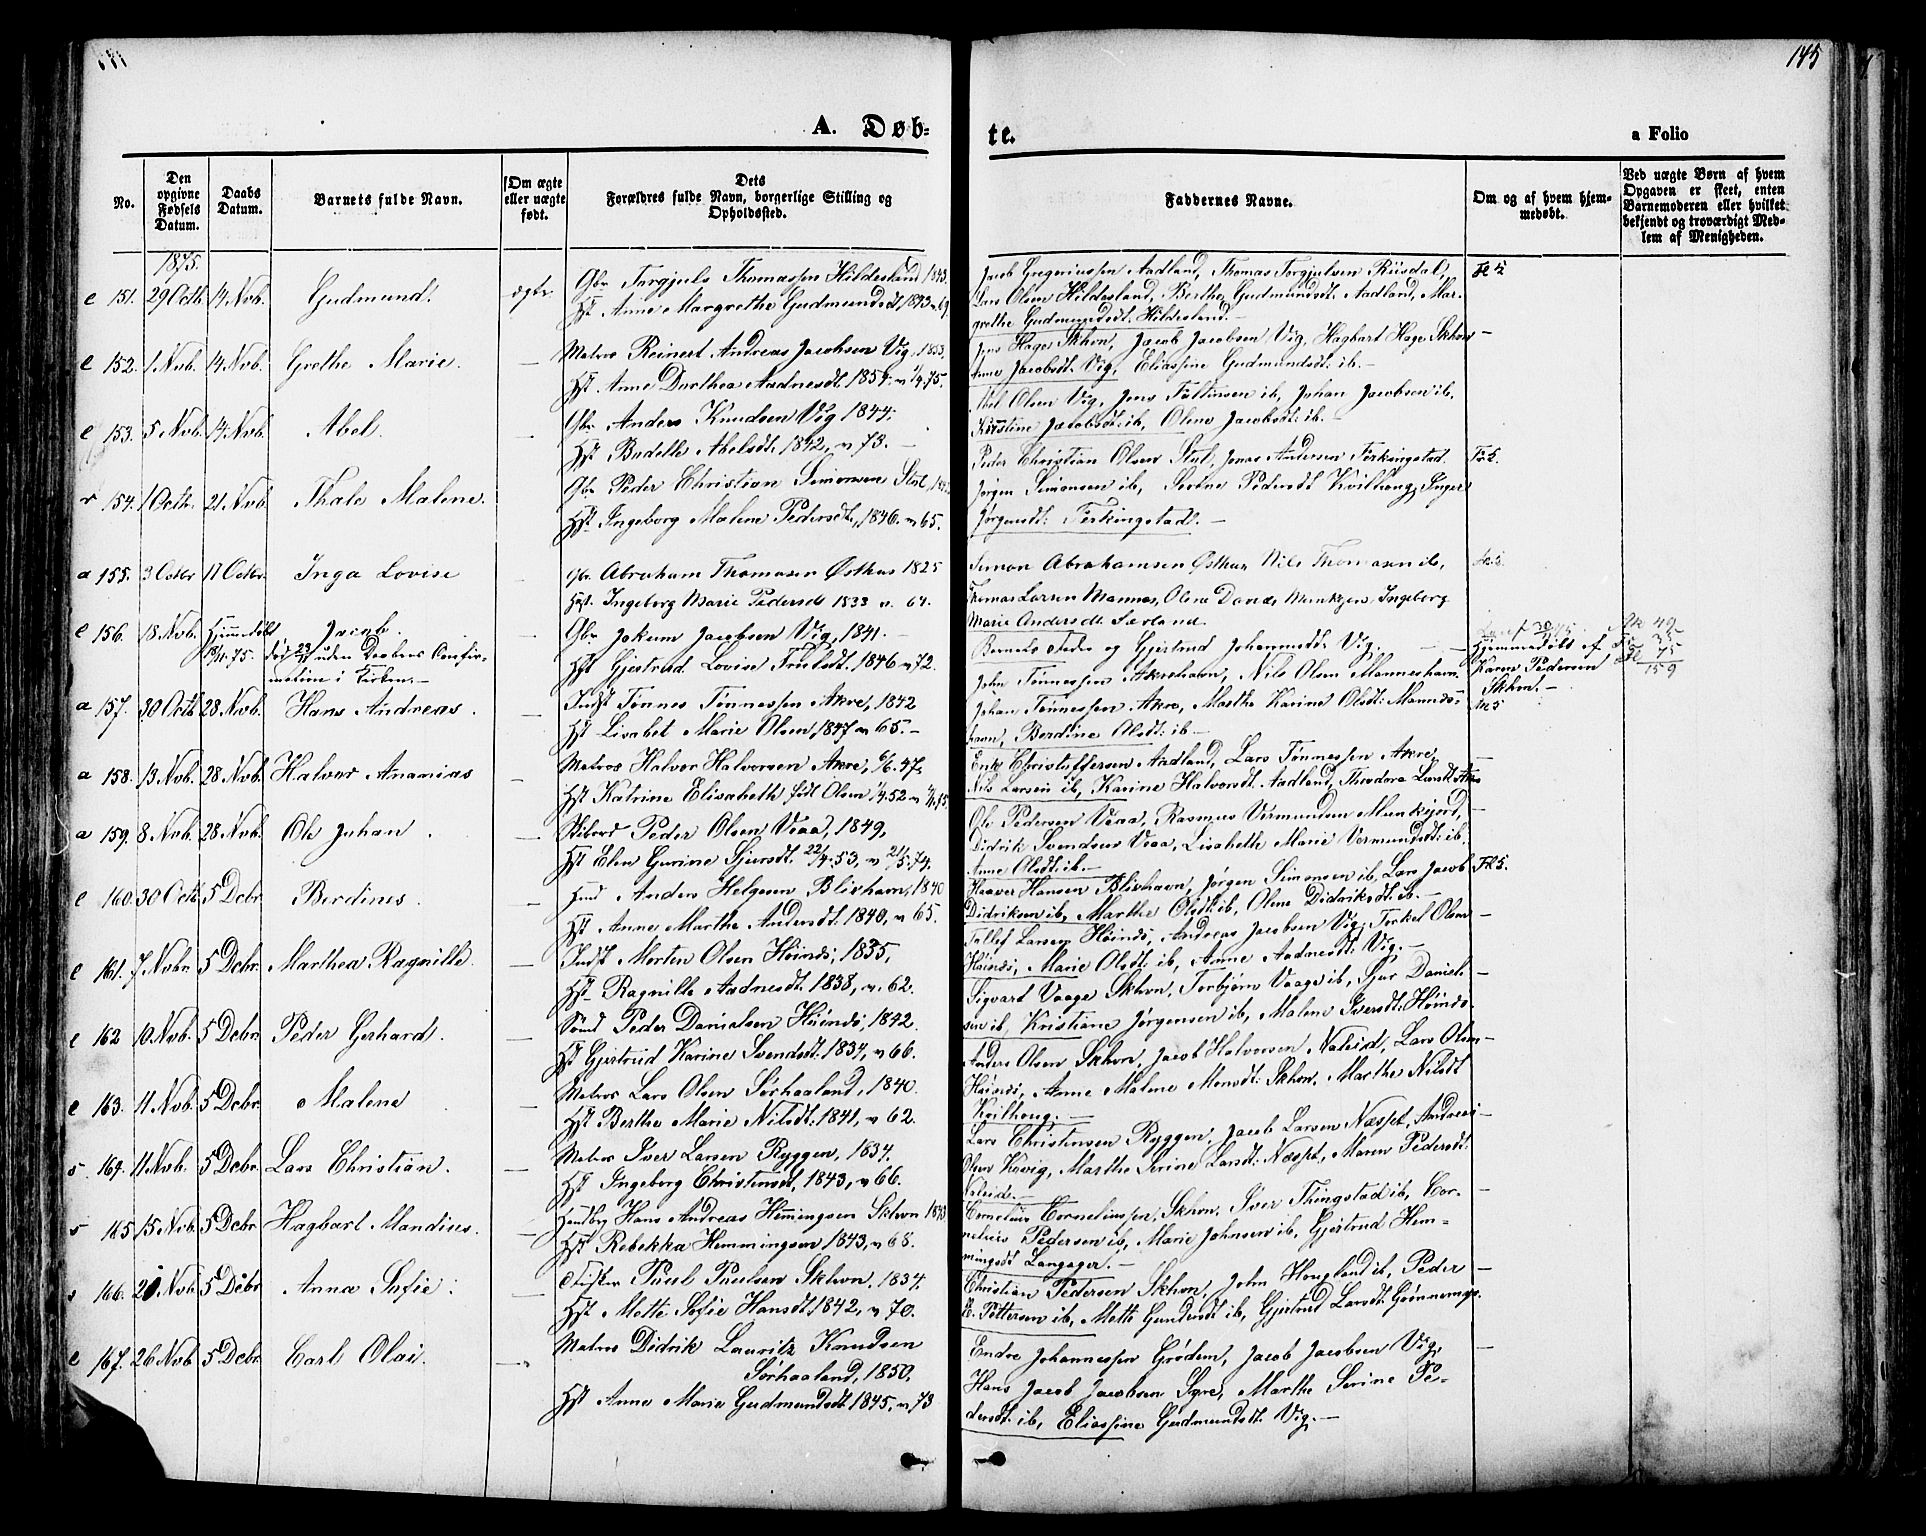 145
A. Døb-
te.
a Folio
No.
Den opgivne Fødsels Datum.
Daabs Datum.
Barnets fulde Navn.
Om ægte eller uægte født.
Dets
Forældres fulde Navn, borgerlige Stilling og
Opholdssted.
Faddernes Navne.
Om og af hvem hjem-
medøbt.
Ved uægte Børn af hvem
Opgaven er skeet, enten
Barnemoderen eller hvilket
bekjendt og troværdigt Med-
lem af Menigheden.
1875.
e 151. 29 Octb. 14 Nvb. Gudmund. ægte
Gbr Torgjuls Thomassen Hildesland 1843.
Hst Anne Margrethe Gudmundsdt 1843 n 69
Jacob Gregeriussen Aadland, Thomas Torgjulsen Riisdal,
Lars Olsen Hildesland, Berthe Gudmundsdt. Aadland, Mar-
grethe Gudmundsdt. Hildesland.-
e 152. 1 Nvb. 14 Nvb. Grethe Marie. —
Matros Reinert Andreas Jacobsen Vig, 1853,
Hst. Anne Dorthea Aadnesdt. 1854.
Jens Hage Skhvn, Jacob Jacobsen Vig, Hagbart Hage Skhvn —
Anne Jacobsdt. Vig, Eliassine Gudmundsdt. ib. -
e 153. 5 Nvb. 14 Nvb. Abel. —
Gbr Anders Knudsen Vig 1844.
Hst Bodelle Abelsdt. 1842, n 73. -
Abel Olsen Vig, Jens ib, Johan Jacobsen ib.
Kirstine Jacobsdt: ib, Olene Jacobsdt: ib. -
r 154. 1 Octb. 21 Nvb. Thale Malene. —
Gbr Peder Christian Simonsen Stol,
Hst. Ingeborg Malene Pedersdt, 1846. n 65.
Peder Christian Olsen Stol, Jonas Andersen Ferkingstad.
Jørgen Simonsen ib, Serine Pedersdt Kvilhoug, Inger
Jørgensdt: Ferkingstad. -
a 155. 3 Octbr 17 Octbr. Inga Lovise —
Gbr. Abraham Thomasen Østhus 1825
Hst. Ingeborg Marie Pedersdt 1833 n. 64.
Simon Abrahamsen Østhus Nils Thomasen ib,
Thomas Larsen Mannes, Olene Munkejor, Ingeborg
Marie Andersdt. Sæland.
e 156. 18 Nvb. Hjemmedøbt 18/11.75. Jacob.
død uden Daabens Confir-
mation i Kirken. -
Gbr Jokum Jacobsen Vig, 1841. -
Hst Gjertrud Lovise 1846 n 72.
Barnets Fader og Gjertrud Johannesdt. Vig. -
Hjemmedøbt af
Karen Pedersen
Skhvn. -
49
35
75
159
a 157. 30 Octb 28 Nvb. Hans Andreas.
Indst Tønnes Tønnessen Akre, 1842
Hst Lisabet Marie Olsen 1847 n 65. -
John Tønnessen Akrehavn, Nils Olsen Manneshavn
Johan Tønnessen Akre, Marthe Karine Olsdt: Mannes-
havn, Berdine Olsdt: ib -
a 158. 13 Nvb. 28 Nvb. Halvor Ananias —
Matros Halvor Halvorsen Akre, 47,
Hst Katrine Elisabeth født Olsen
Erik Christoffersen Aadland, Lars Tønnessen Akre, —
Nils Larsen ib, Karine Halvorsdt. Aadland, Theodora Larsdt Akre
a 159. 8 Nvb. 28 Nvb. Ole Johan. —
Peder Olsen Veaa, 1849,
Hst Elen Gurine Sjursdt. 22/4.53, n 21/5.74.
Ole Pedersen Veaa, Rasmus Vermundsen Munkejord, —
Didrik Svendsen Veaa, Lisabeth Marie Vermundsdt: ib.
Anne Olsdt: ib. -
e 160. 30 Octb 5 Dcbr. Berdines. —
Anders Helgesen Blixhavn, 1840
Hst Anne Marthe Andersdt. 1840, n 65.
Haaver Hansen Blixhavn, Jørgen Simonsen ib, Lars Jacob
Didriksen ib, Marthe Olsdt: ib, Olene Didriksdt: ib. -
e 161. 7 Nvbr 5 Dcbr. Marthea Ragnille. —
Indst Morten Olsen Høinds, 1835,
Hst Ragnille Aadnesdt. 1838, n. 62.
Tollef Larsen Høinds, Andreas Jacobsen Vig, Torkel Olsen —
Høinds, Marie Olsdt: ib, Anne Aadnesdt: Vig. -
e 162 10 Nvb. 5 Dcbr. Peder Gerhard. —
Peder Danielsen Høinds, 1842.
Hst Gjertrud Karine Svendsdt. 1834, n 66.
Sigvart Vaage Skhvn, Torbjørn Vaage ib, Sjur Daniel- —
sen ib, Kristiane Jørgensen ib, Malene Iversdt: Høinds.
e 163. 11 Nvb. 5 Dcbr. Malene —
Matros Lars Olsen Sørhaaland, 1840.
Hst Berthe Marie Nilsdt: 1841, n 62.
Anders Olsen Skhvn, Jacob Halvorsen Naleid, Lars Olsen —
Høinds, Anne Malene Monsdt: Skhvn, Marthe Nilsdt
Kvilhoug. -
s 164. 11 Nvb. 5 Dcbr. Lars Christian. —
Matros Iver Larsen Ryggen, 1834.
Hst Ingeborg Christensdt, 1843, n 66.
Lars Christensen Ryggen, Jacob Larsen Næsset, Andreas —
Olsen Kovig, Marthe Serine Larsdt: Næsset, Maren Pedersdt:
Naleid. -
s 165 15 Nvb. 5 Dcbr Hagbart Mandius. —
Hans Andreas Hemmingsen Skhvn 1843
Hst Rebekka Hemmingsen 1843, n 68.
Cornelius Corneliussen, Skhvn, Iver Thingstad ib, Cor- —
nelius Pedersen ib, Marie Johnsen ib, Gjertrud Hem-
mingsdt Langager. -
s 166. 20 Nvb 5 Dcbr Anna Sofie. —
Poul Poulsen Skhvn. 1834.
Hst Mette Sofie Hansdt. 1842, n 70.
Christian Pedersen Skhvn, John Hougland ib, Peder —
E. Pettersen ib, Mette Gundersdt ib, Gjertrud Larsdt
e 167. 26 Nvb 5 Dcbr. Carl Olai. —
Matros Didrik Lauritz Knudsen
Sørhaaland, 1850,
Hst Anne Marie Gudmundsdt 1845, n 73
Endre Johannessen Grødem, Jacob Jacobsen Vig, —
Hans Jacob Jacobsen Syre, Marthe Serine Pe-
dersdt: ib, Eliassine Gudmundsdt. Vig. -